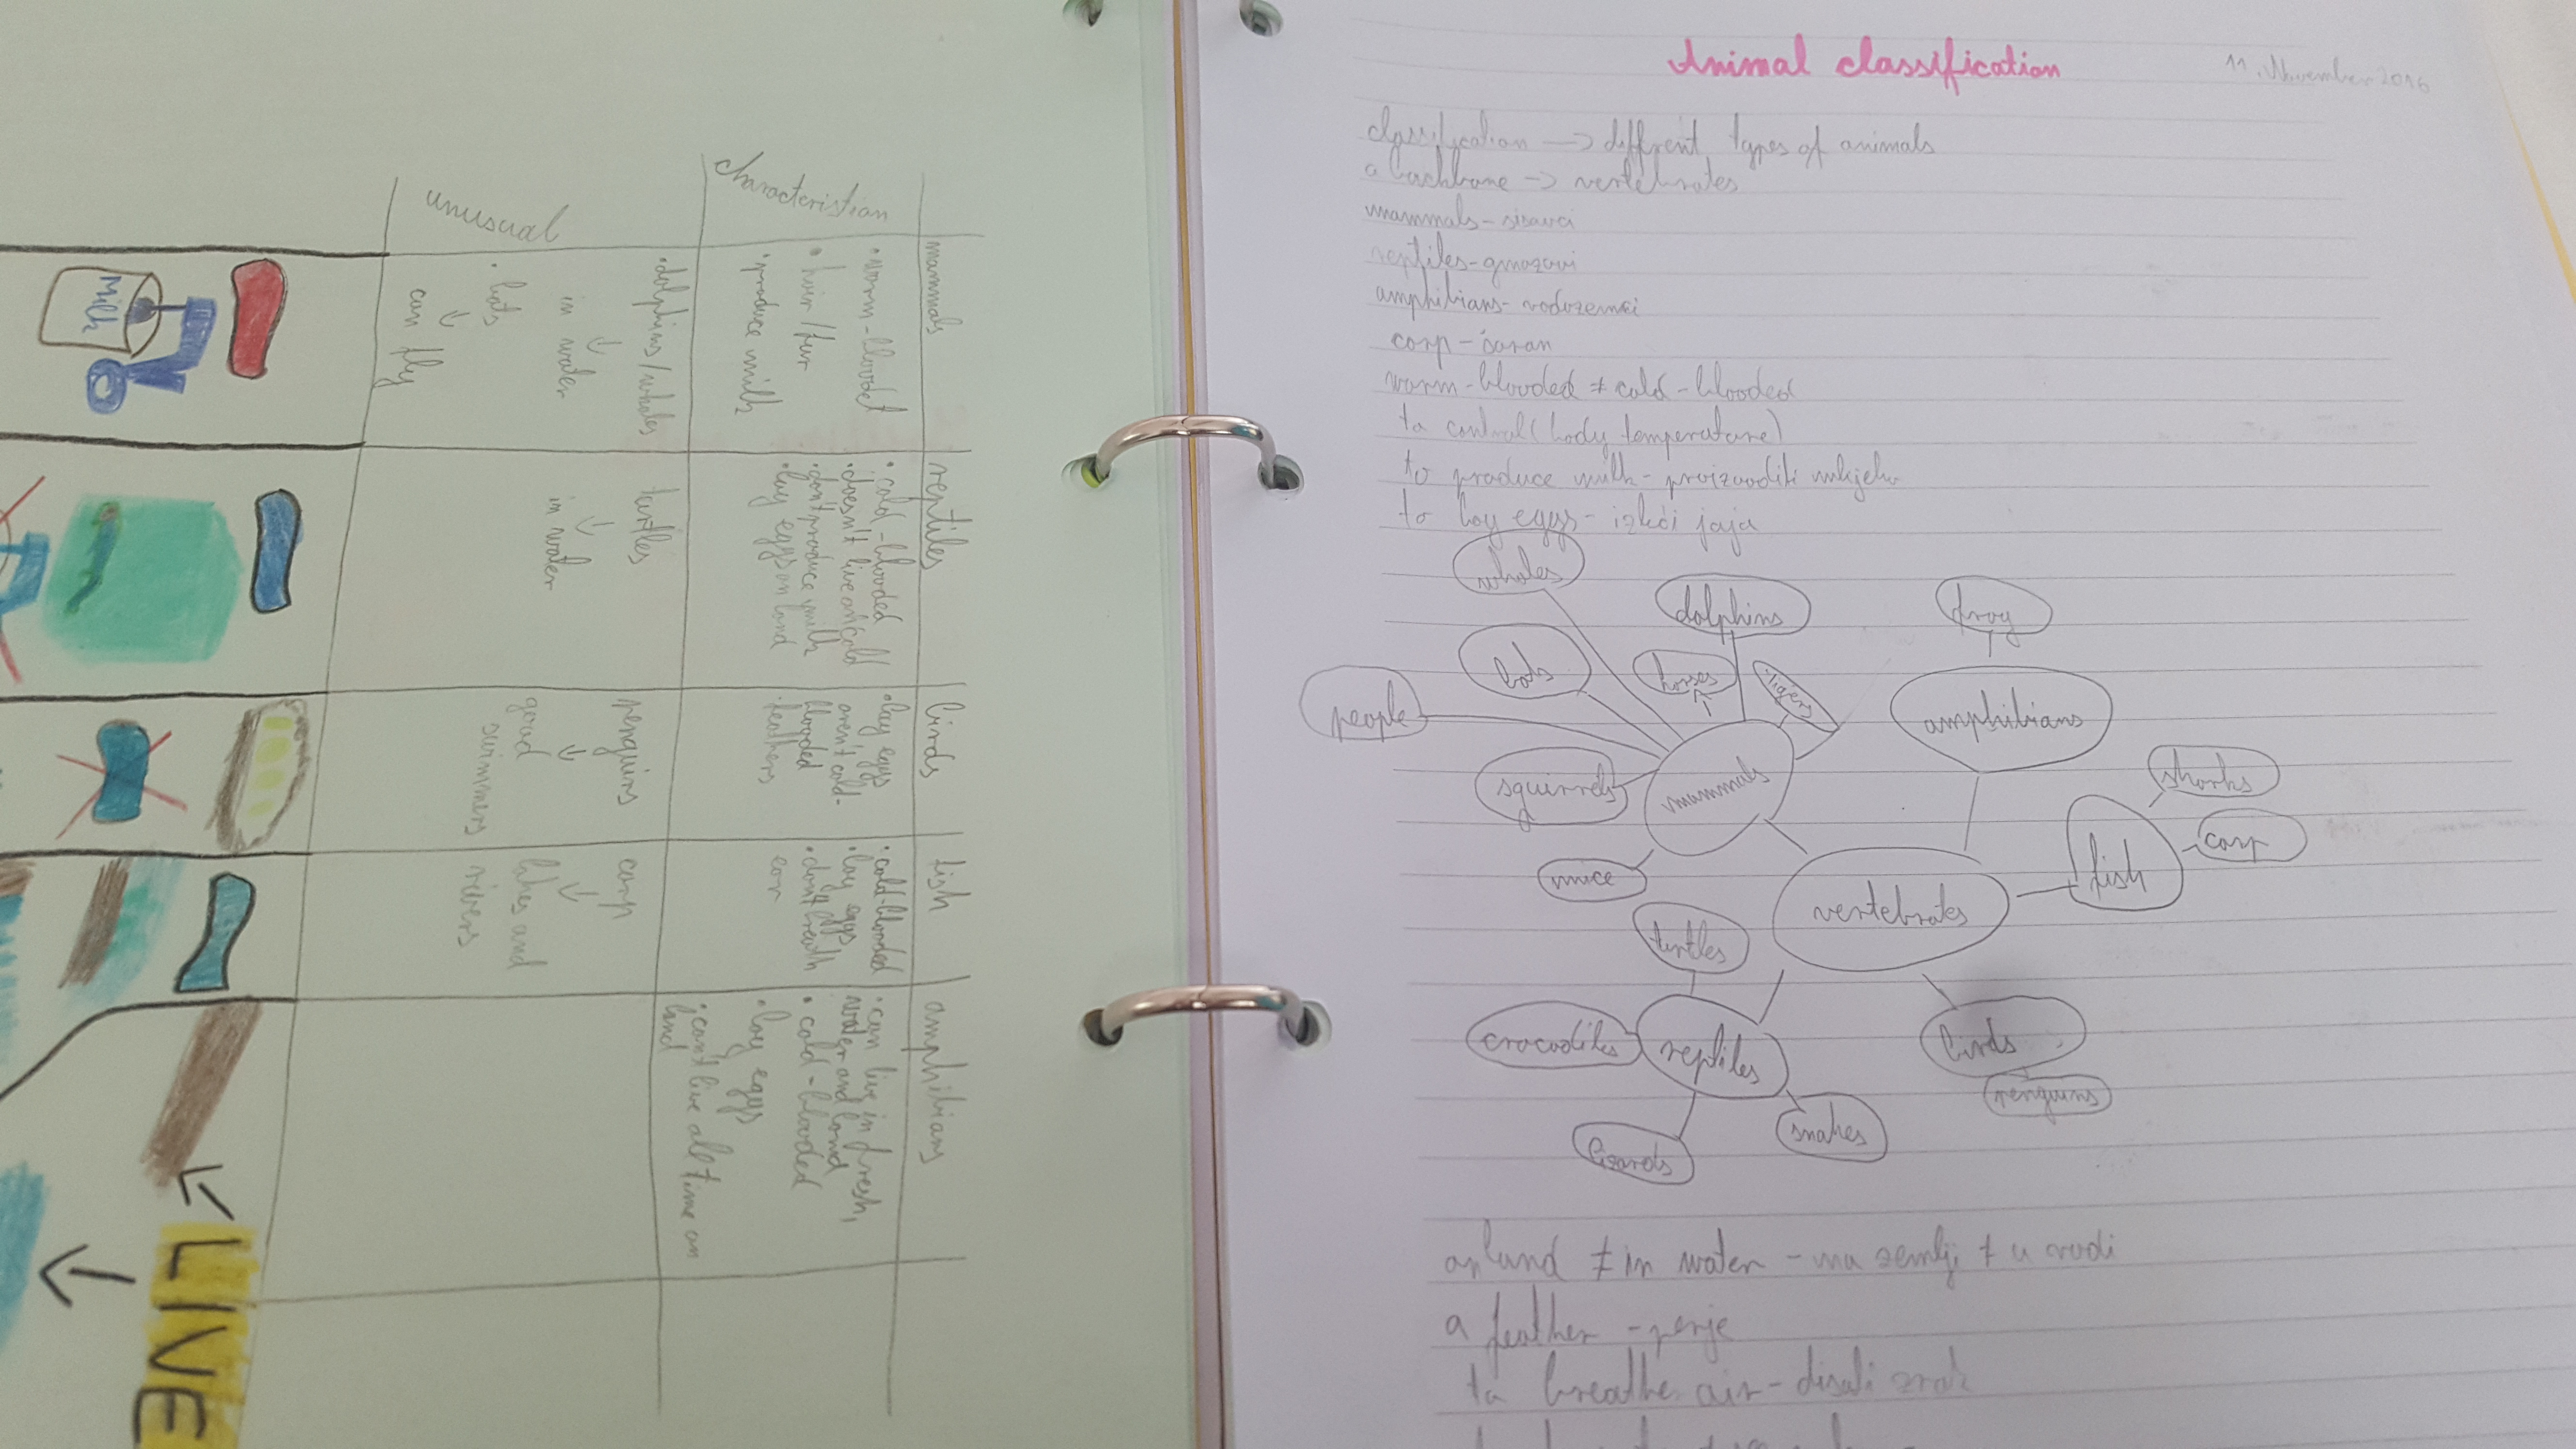 characteristian
unusual
mammals
• worm-bloodet
• hair/fur
• produce milk
• dolphins/whales
↓
in water
• bats
↓
can fly
Milk
reptiles
• cold-blooded
• doesn't live on cold
• don't produce milk
• lay eggs on land
turtles
↓
in water
birds
• lay eggs
aren't cold-
blooded
feathers
penguins
↓
good
swimmers
fish
• cold-blooded
• lay eggs
• don't breath
carp
↓
lakes and
rivers
amphibians
• can live in fresh,
water and land
• cold-blooded
• lay eggs
• can't live all time on
land
LIVE
Animal classification
11. November 2016
classification → different types of animals
a backbone → vertebrates
mammals - sisavci
reptiles - gmazovi
amphibians - vodozemci
carp - šaran
warm-blooded ≠ cold-blooded
to control (body temperature)
to produce milk - proizvoditi mlijeko
to lay eggs - izleći jaja
whales
dolphins
frog
bats
horses
tigers
people
amphibians
squirrels
mammals
sharks
carp
fish
mice
vertebrates
turtles
crocodiles
reptiles
birds
penguins
snakes
lizards
on land ≠ in water - na zemlji ≠ u vodi
a feather - perje
to breathe air - disati zrak